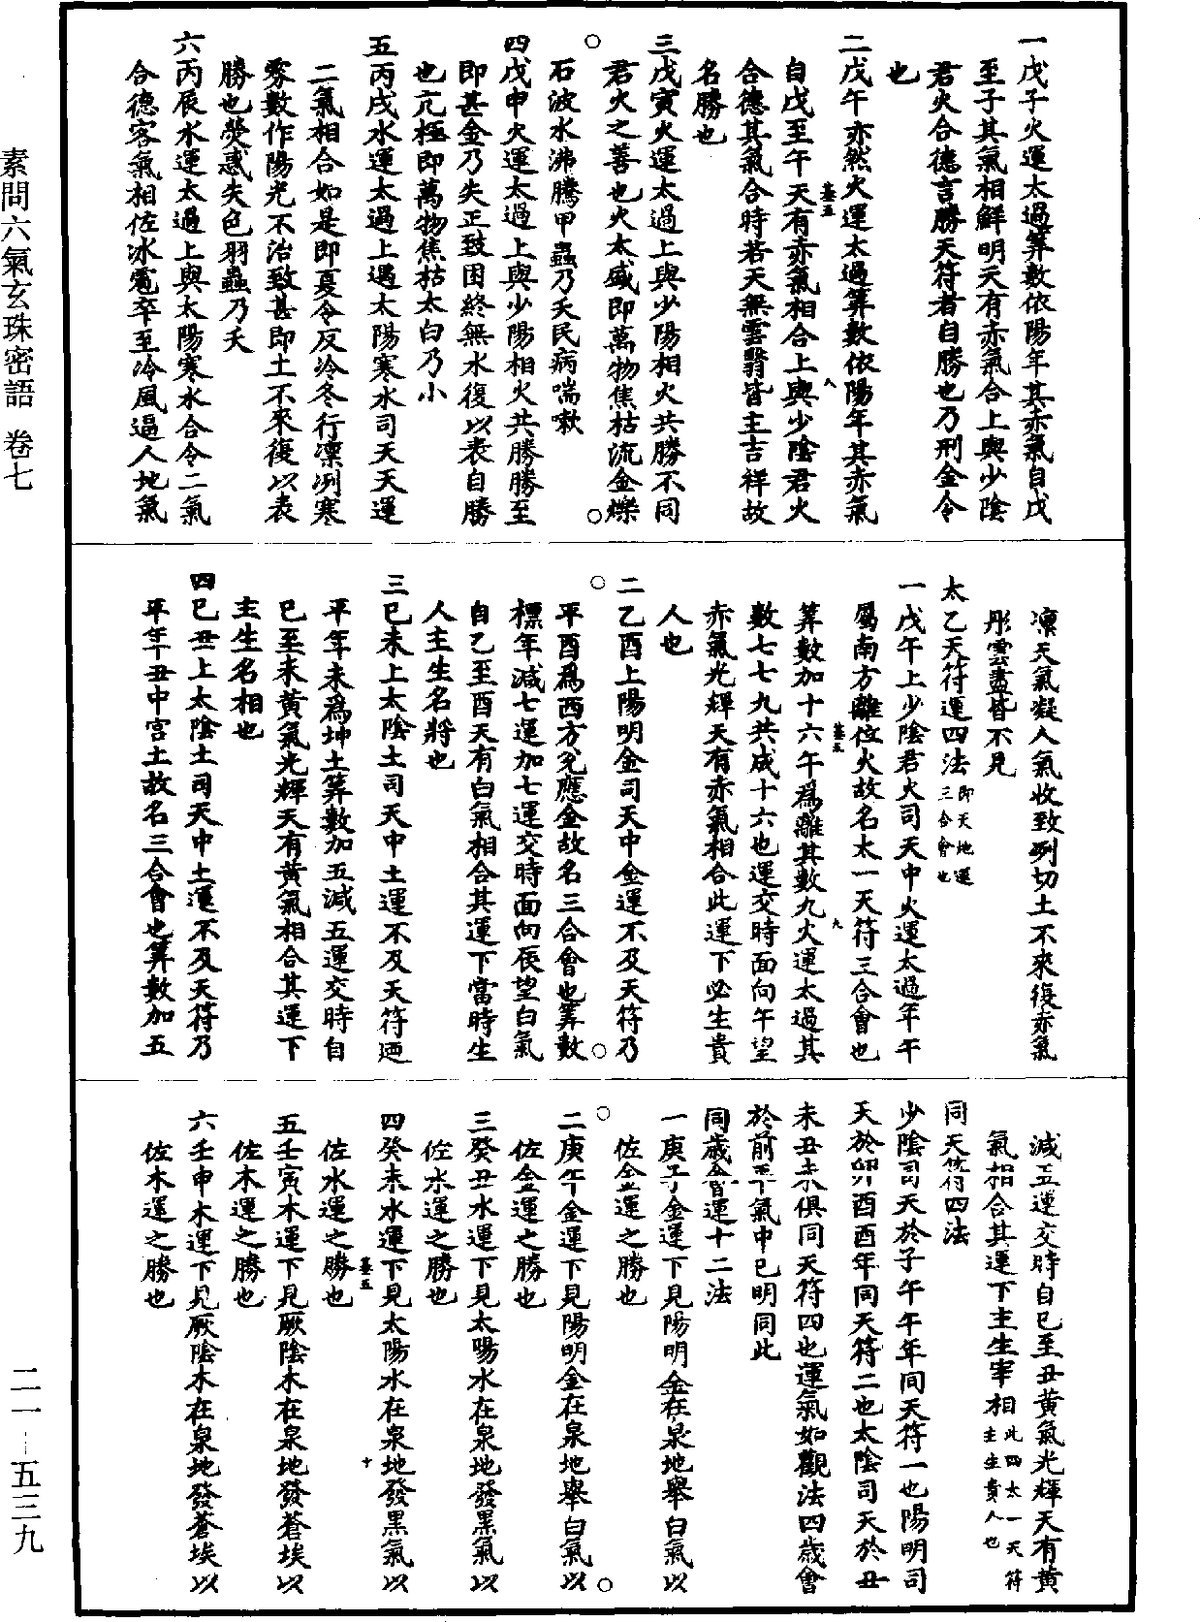 一戊子火運太過筭數依陽年其赤氣自戊
至子其氣相鮮明天有赤氣合上與少陰
君火合德言勝天符者自勝也乃刑金令
也
二戊午亦然火運太過筭數依陽年其赤氣
自戊至午天有赤氣相合上與少陰君火
合德其氣合時若天無雲翳皆主吉祥故
名勝也
三戊寅火運太過上與少陽相火共勝不同
君火之善也火太盛即萬物焦枯流金爍
石波水沸騰甲蟲乃夭民病喘嗽
四戊申火運太過上與少陽相火共勝勝至
即甚金乃失正致困終無水復以表自勝
也亢極即萬物焦枯太白乃小
五丙戌水運太過上遇太陽寒水司天天運
二氣相合如是即夏令反冷冬行凜冽寒
雰數作陽光不治致甚即土不來復以表
勝也熒惑失色羽蟲乃夭
六丙辰水運太過上與太陽寒水合令二氣
合德客氣相佐冰雹卒至冷風逼人地氣
凜天氣凝人氣收致冽切土不來復赤氣
彤雲盡皆不見
太乙天符運四法即天地運三合會也
一戊午上少陰君火司天中火運太過年午
屬南方離位火故名太一天符三合會也
筭數加十六午爲離其數九火運太過其
數七七九共成十六也運交時面向午望
赤氣光輝天有赤氣相合此運下必生貴
人也
二乙酉上陽明金司天中金運不及天符乃
平酉爲西方兌應金故名三合會也筭數
標年減七運加七運交時面向辰望白氣
自乙至酉天有白氣相合其運下當時生
人主生名將也
三己未上太陰土司天中土運不及天符迺
平年未爲坤土筭數加五減五運交時自
巳至未黃氣光輝天有黃氣相合其運下
主生名相也
四己丑上太陰土司天中土運不及天符乃
平年丑中宫土故名三合會也筭數加五
減五運交時自巳至丑黃氣光輝天有黃
氣相合其運下主生宰相此四太一天符主生貴人也
同天符四法
少陰司天於子午午年间天符一也陽明司
天於卯酉酉年同天符二也太陰司天於丑
未丑未俱同天符四也運氣如觀法四歲會
於前平氣中已明同此
同歲會運十二法
一庚子金運下見陽明金在泉地舉白氣以
佐金運之勝也
二庚午金運下見陽明金在泉地舉白氣以
佐金運之勝也
三癸丑水運下見太陽水在泉地發黑氣以
佐水運之勝也
四癸未水運下見太陽水在泉地發黑氣以
佐水運之勝也
五壬寅木運下見厥陰木在泉地發蒼埃以
佐木運之勝也
六壬申木運下見厥陰木在泉地發蒼埃以
佐木運之勝也
素問六氣玄珠密語 卷七
二一—五三九